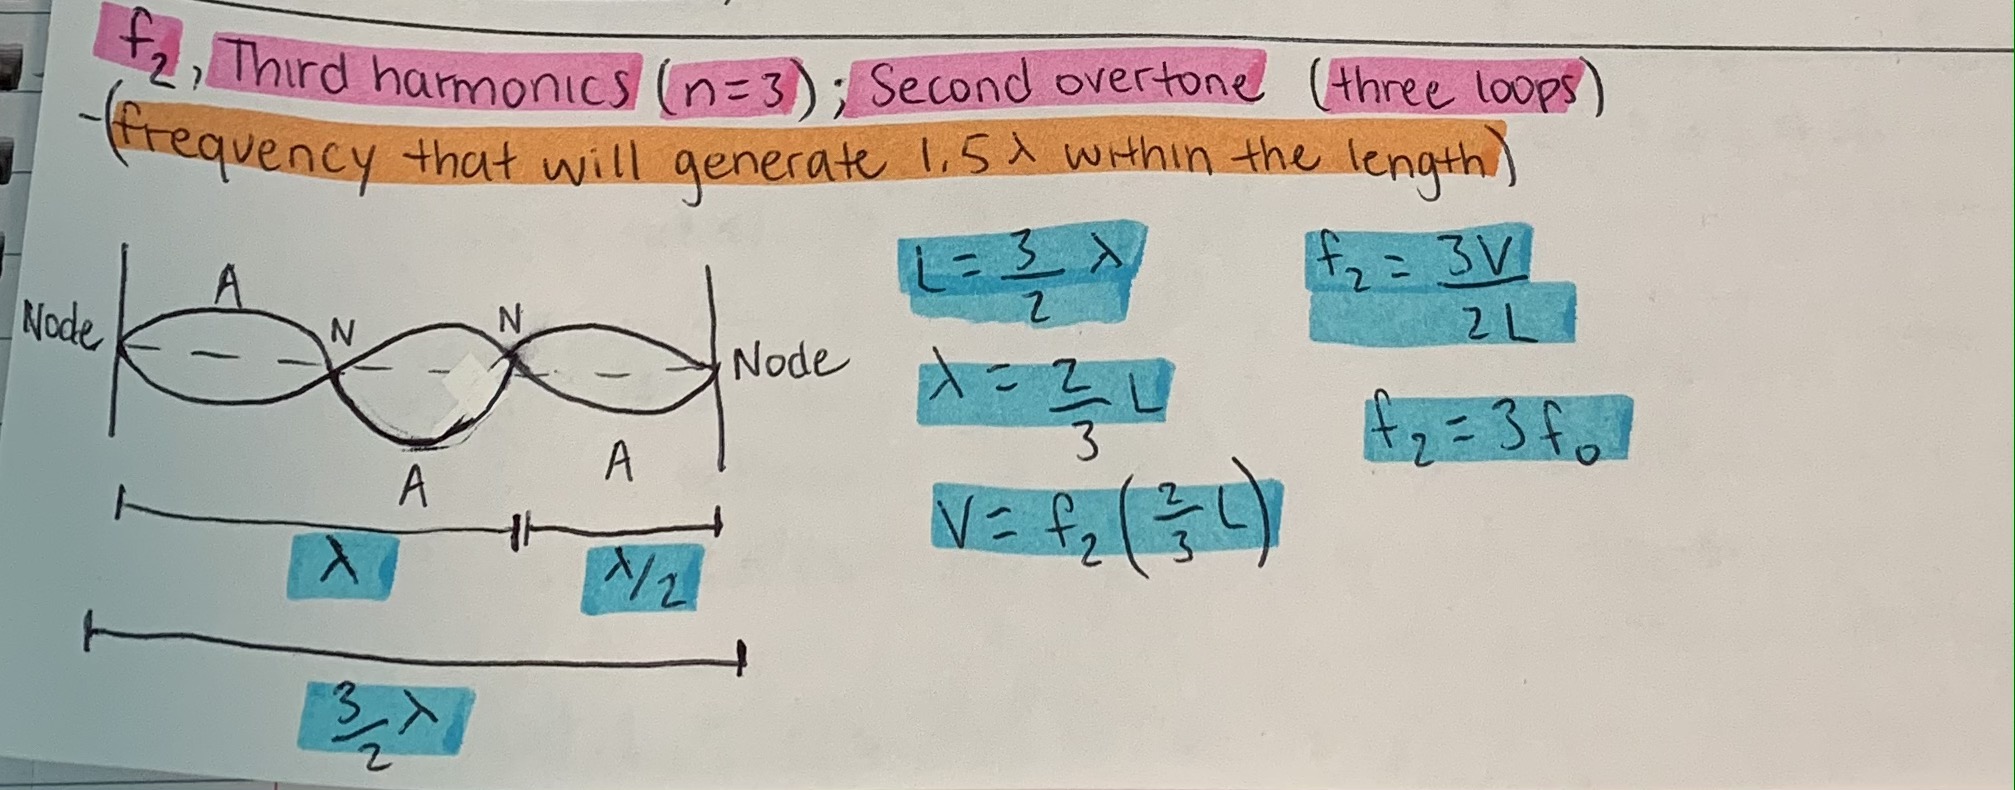 f₂, Third harmonics (n=3); Second overtone (three loops)
-(frequency that will generate 1.5 λ within the length)
A
Node N N Node
A A
λ λ/2
3/2 λ
L = 3/2 λ
λ = 2/3 L
V = f₂ (2/3 L)
f₂ = 3V/2L
f₂ = 3f₀